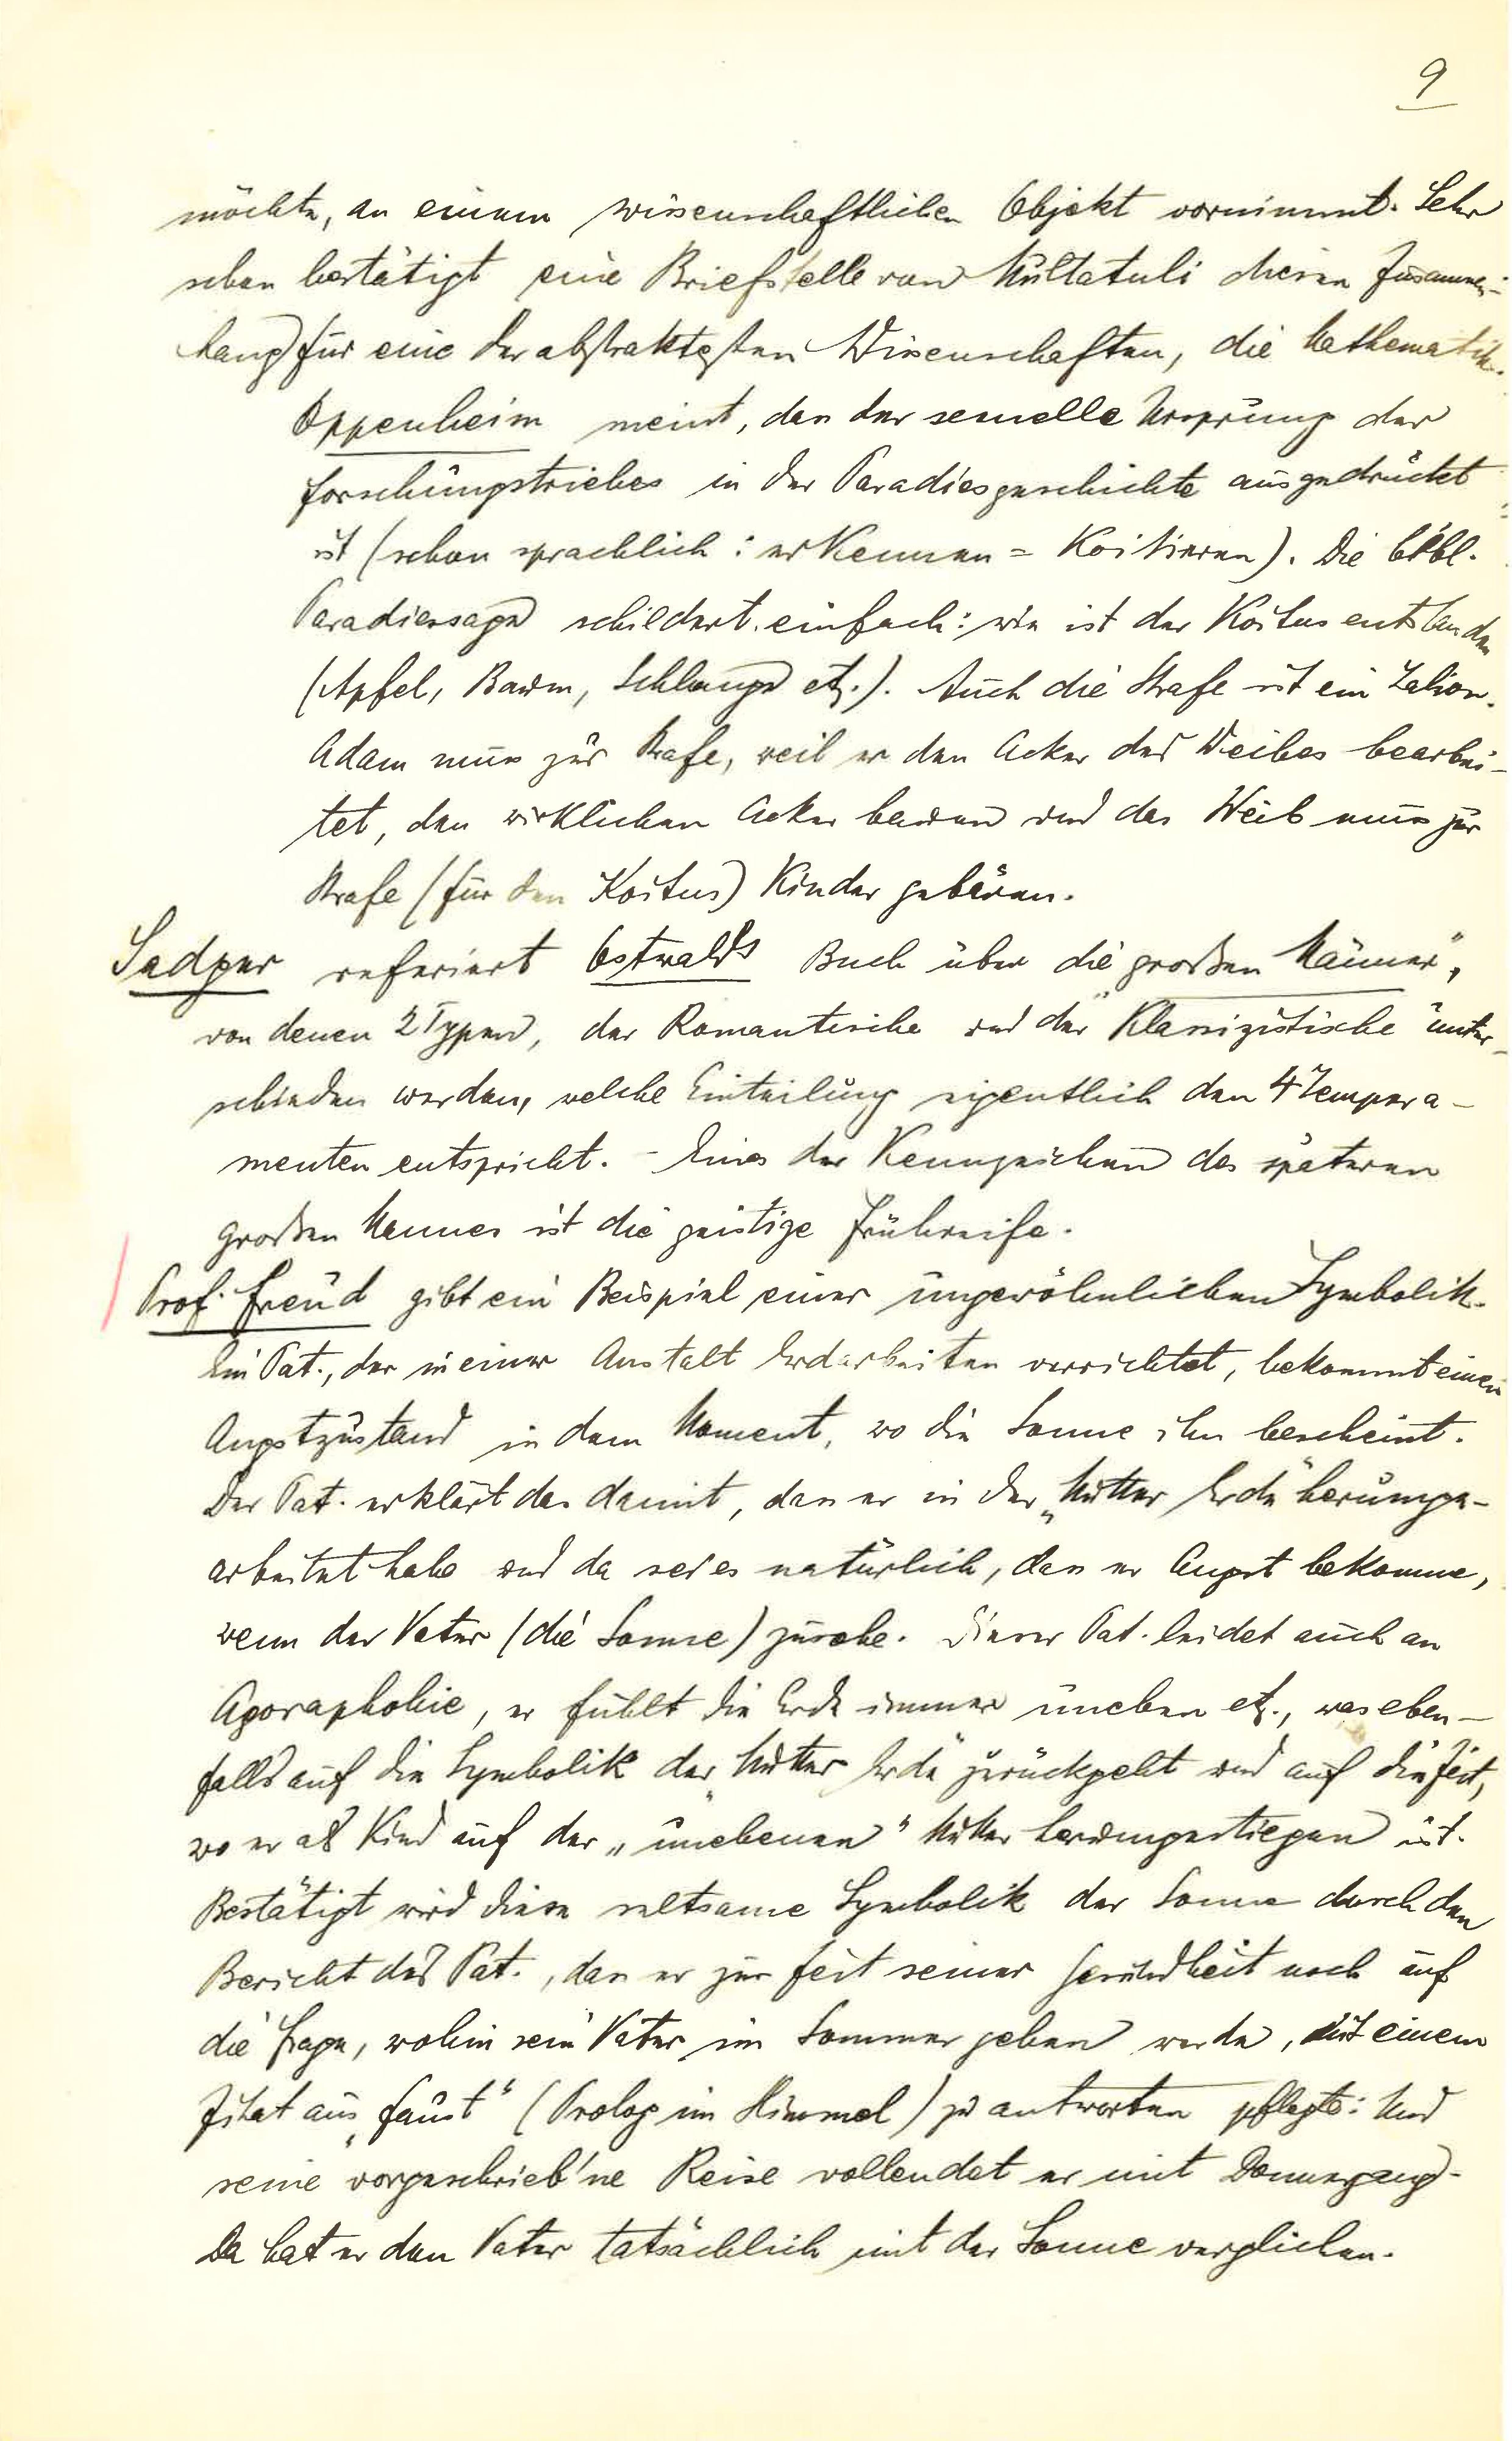 9
möchte, an einem wissenschaftlichen Objekt vornimmt. Sehr
schön bestätigt eine Briefstelle von Multatuli diesen Zusammen-
hang für eine der abstraktesten Wissenschaften, die Mathematik.
Oppenheim meint, dass der sexuelle Ursprung des
Forschungstriebes in der Paradiesgeschichte ausgedrückt
ist (schon sprachlich: erkennen = koitieren). Die bibl.
Paradiessage schildert einfach: wie ist der Koitus entstanden
(Apfel, Baum, Schlange etz.). Auch die Strafe ist ein Talion.
Adam muss zur Strafe, weil er den Acker des Weibes bearbei-
tet, den wirklichen Acker bauen und das Weib muss zur
Strafe (für den Koitus) Kinder gebären.
Sadger referiert Ostwalds Buch über die „großen Männer",
von denen 2 Typen, der Romantische und der „Klassizistische" unter-
schieden werden, welche Einteilung eigentlich den 4 Tempera-
menten entspricht. - Eines der Kennzeichen des späteren
großen Mannes ist die geistige Frühreife.
Prof. Freud gibt ein Beispiel einer ungewöhnlichen Symbolik.
Ein Pat., der in einer Anstalt Erdarbeiten verrichtet, bekommt einen
Angstzustand in dem Moment, wo die Sonne ihn bescheint.
Der Pat. erklärt das damit, dass er in der „Mutter Erde" herumge-
arbeitet habe und da sei es natürlich, dass er Angst bekomme,
wenn der Vater (die Sonne) zusehe. Dieser Pat. leidet auch an
Agoraphobie, er fühlt die Erde immer uneben etz., was eben-
falls auf die Symbolik der „Mutter Erde" zurückgeht und auf die Zeit,
wo er als Kind auf der „unebenen" Mutter herumgestiegen ist.
Bestätigt wird diese seltsame Symbolik der Sonne durch den
Bericht des Pat., dass er zur Zeit seiner Gesundheit noch auf
die Frage, wohin sein Vater im Sommer gehen werde, mit einem
Zitat aus „Faust" (Prolog im Himmel) zu antworten pflegte: Und
seine vorgeschrieb'ne Reise vollendet er mit Donnergang.
Da hat er den Vater tatsächlich mit der Sonne verglichen.